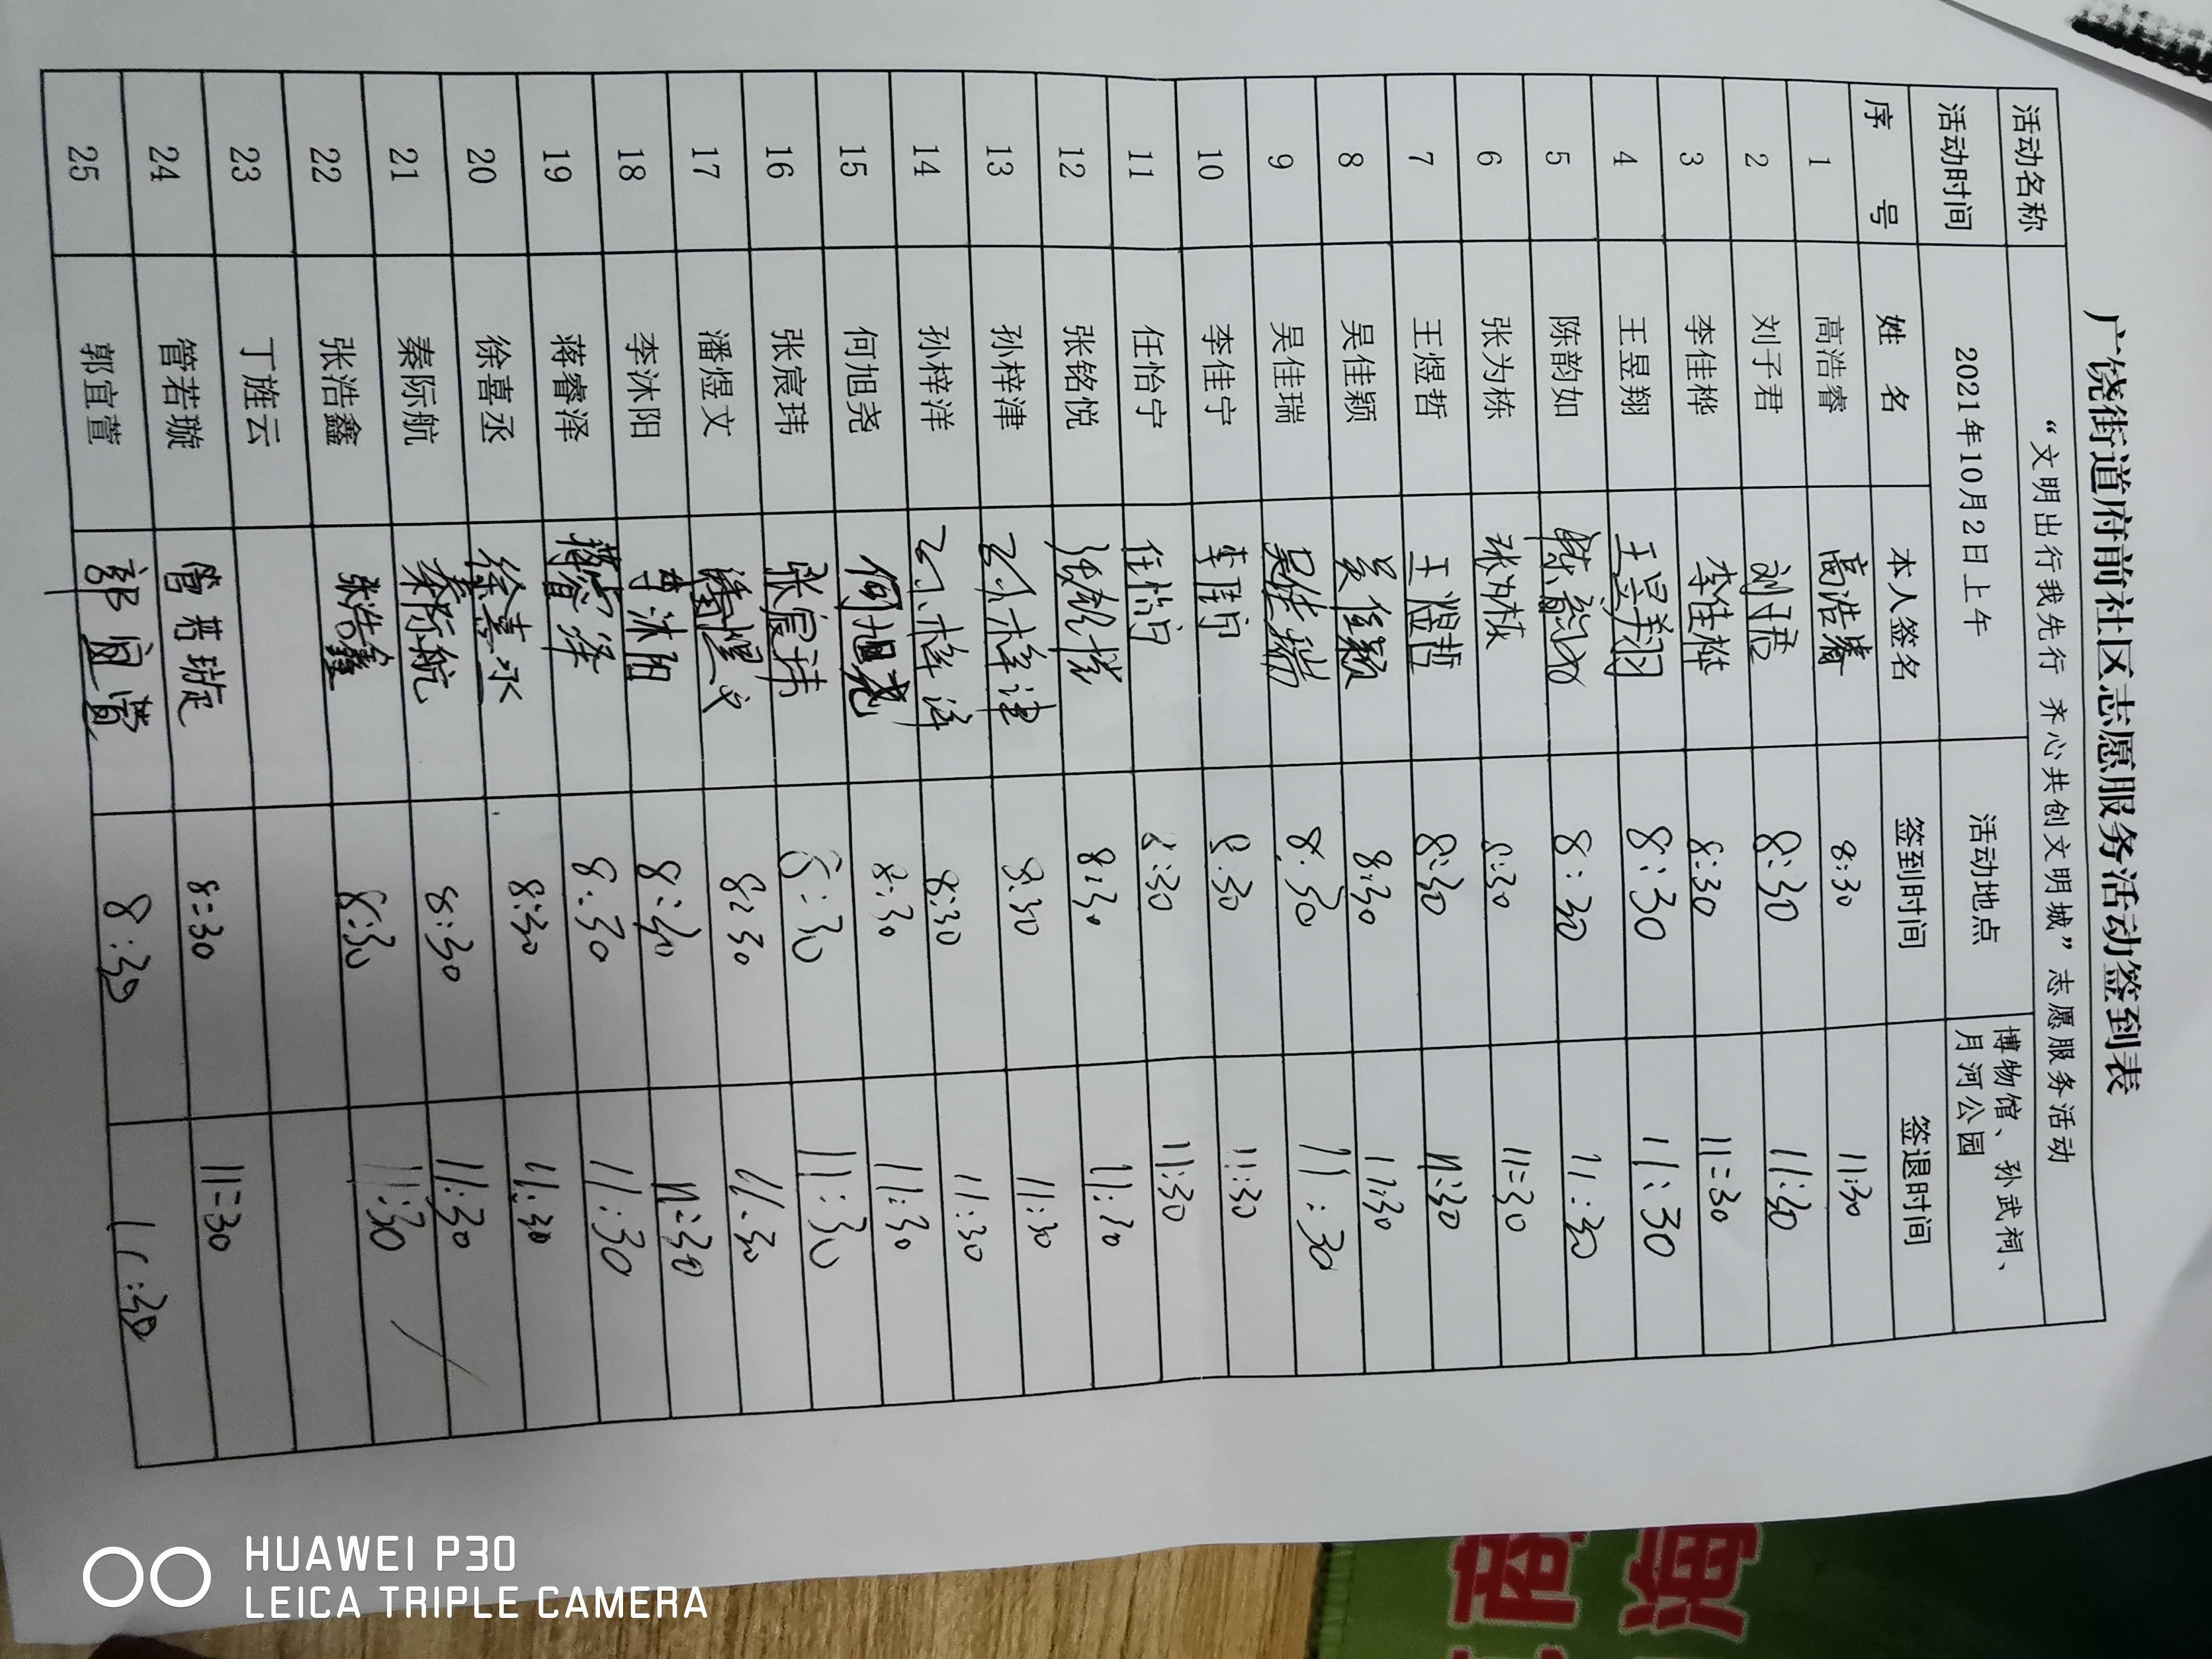 广饶街道府前社区志愿服务活动签到表
活动名称 “文明出行我先行 齐心共创文明城”志愿服务活动
活动时间 2021年10月2日上午 活动地点 博物馆、孙武祠、
月河公园
序 号 姓 名 本人签名 签到时间 签退时间
1 高浩睿 高浩睿 8:30 11:30
2 刘子君 刘子君 8:30 11:30
3 李佳桦 李佳桦 8:30 11:30
4 王昱翔 王昱翔 8:30 11:30
5 陈韵如 陈韵如 8:30 11:30
6 张为栋 张为栋 8:30 11:30
7 王煜哲 王煜哲 8:30 11:30
8 吴佳颖 吴佳颖 8:30 11:30
9 吴佳瑞 吴佳瑞 8:30 11:30
10 李佳宁 李佳宁 8:30 11:30
11 任怡宁 任怡宁 8:30 11:30
12 张铭悦 张铭悦 8:30 11:30
13 孙梓津 孙梓津 8:30 11:30
14 孙梓洋 孙梓洋 8:30 11:30
15 何旭尧 何旭尧 8:30 11:30
16 张宸玮 张宸玮 8:30 11:30
17 潘煜文 潘煜文 8:30 11:30
18 李沐阳 李沐阳 8:30 11:30
19 蒋睿泽 蒋睿泽 8:30 11:30
20 徐喜丞 徐喜丞 8:30 11:30
21 秦际航 秦际航 8:30 11:30
22 张浩鑫 张浩鑫 8:30 11:30
23 丁旌云
24 管若璇 管若璇 8:30 11:30
25 郭宜萱 郭宜萱 8:30 11:30
商
海
HUAWEI P30
LEICA TRIPLE CAMERA